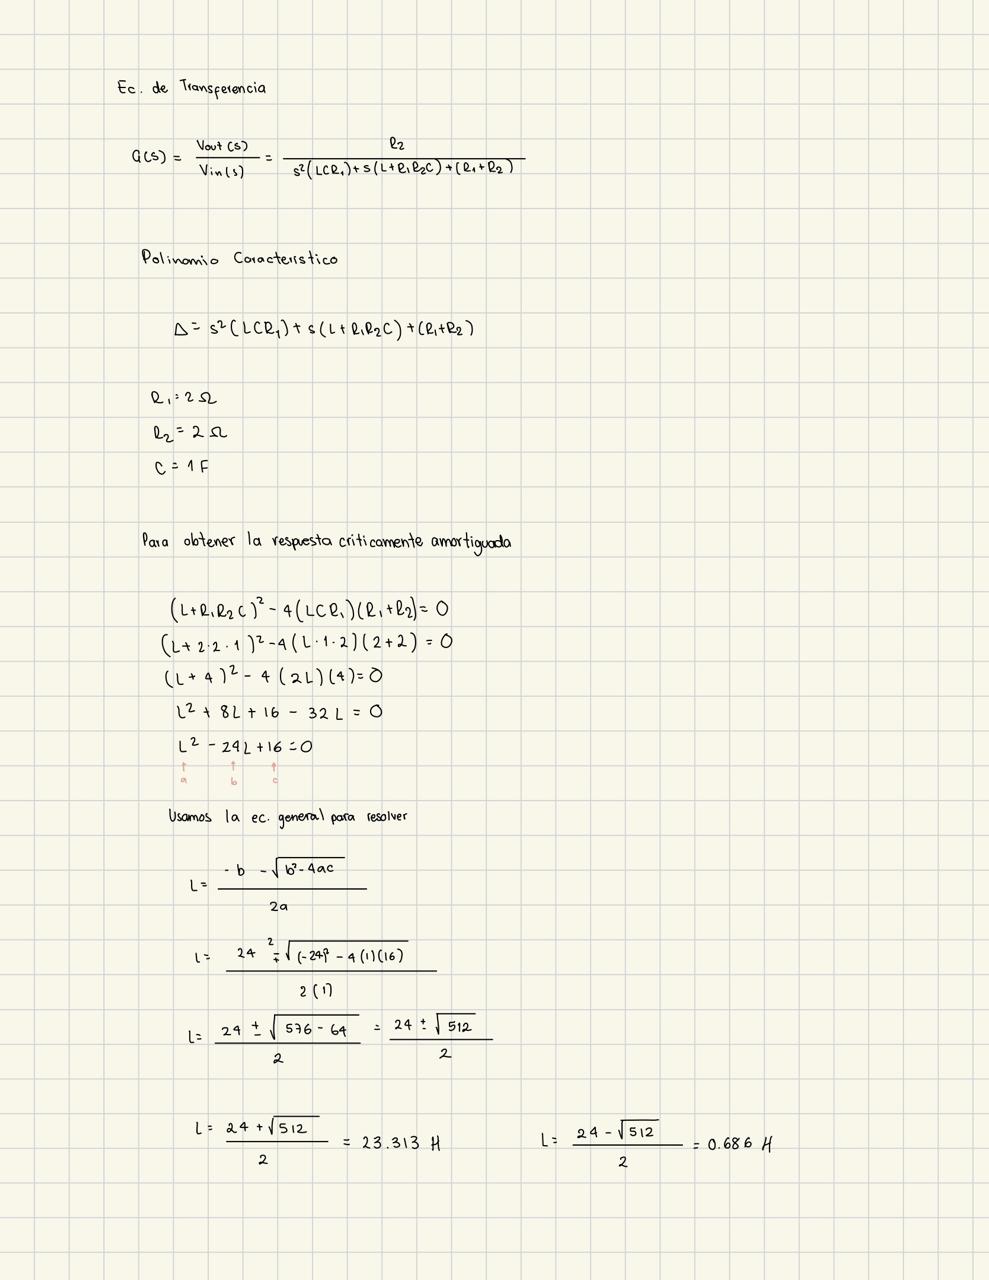 Ec. de Transferencia
G(s) = Vout(s) / Vin(s) = R2 / s²(LCR1)+s(L+R1R2C)+(R1+R2)
Polinomio Característico
Δ= s²(LCR1)+s(L+R1R2C)+(R1+R2)
R1=2Ω
R2=2Ω
C=1F
Para obtener la respuesta criticamente amortiguada
(L+R1R2C)²-4(LCR1)(R1+R2)=0
(L+2·2·1)²-4(L·1·2)(2+2)=0
(L+4)²-4(2L)(4)=0
L²+8L+16-32L=0
L²-24L+16=0
↑ ↑ ↑
a b c
Usamos la ec. general para resolver
L= -b -√b²-4ac / 2a
L= 24 ∓ √(-24)²-4(1)(16) / 2(1)
L= 24 ± √576-64 / 2 = 24 ± √512 / 2
L= 24+√512 / 2 = 23.313 H
L= 24-√512 / 2 = 0.686 H